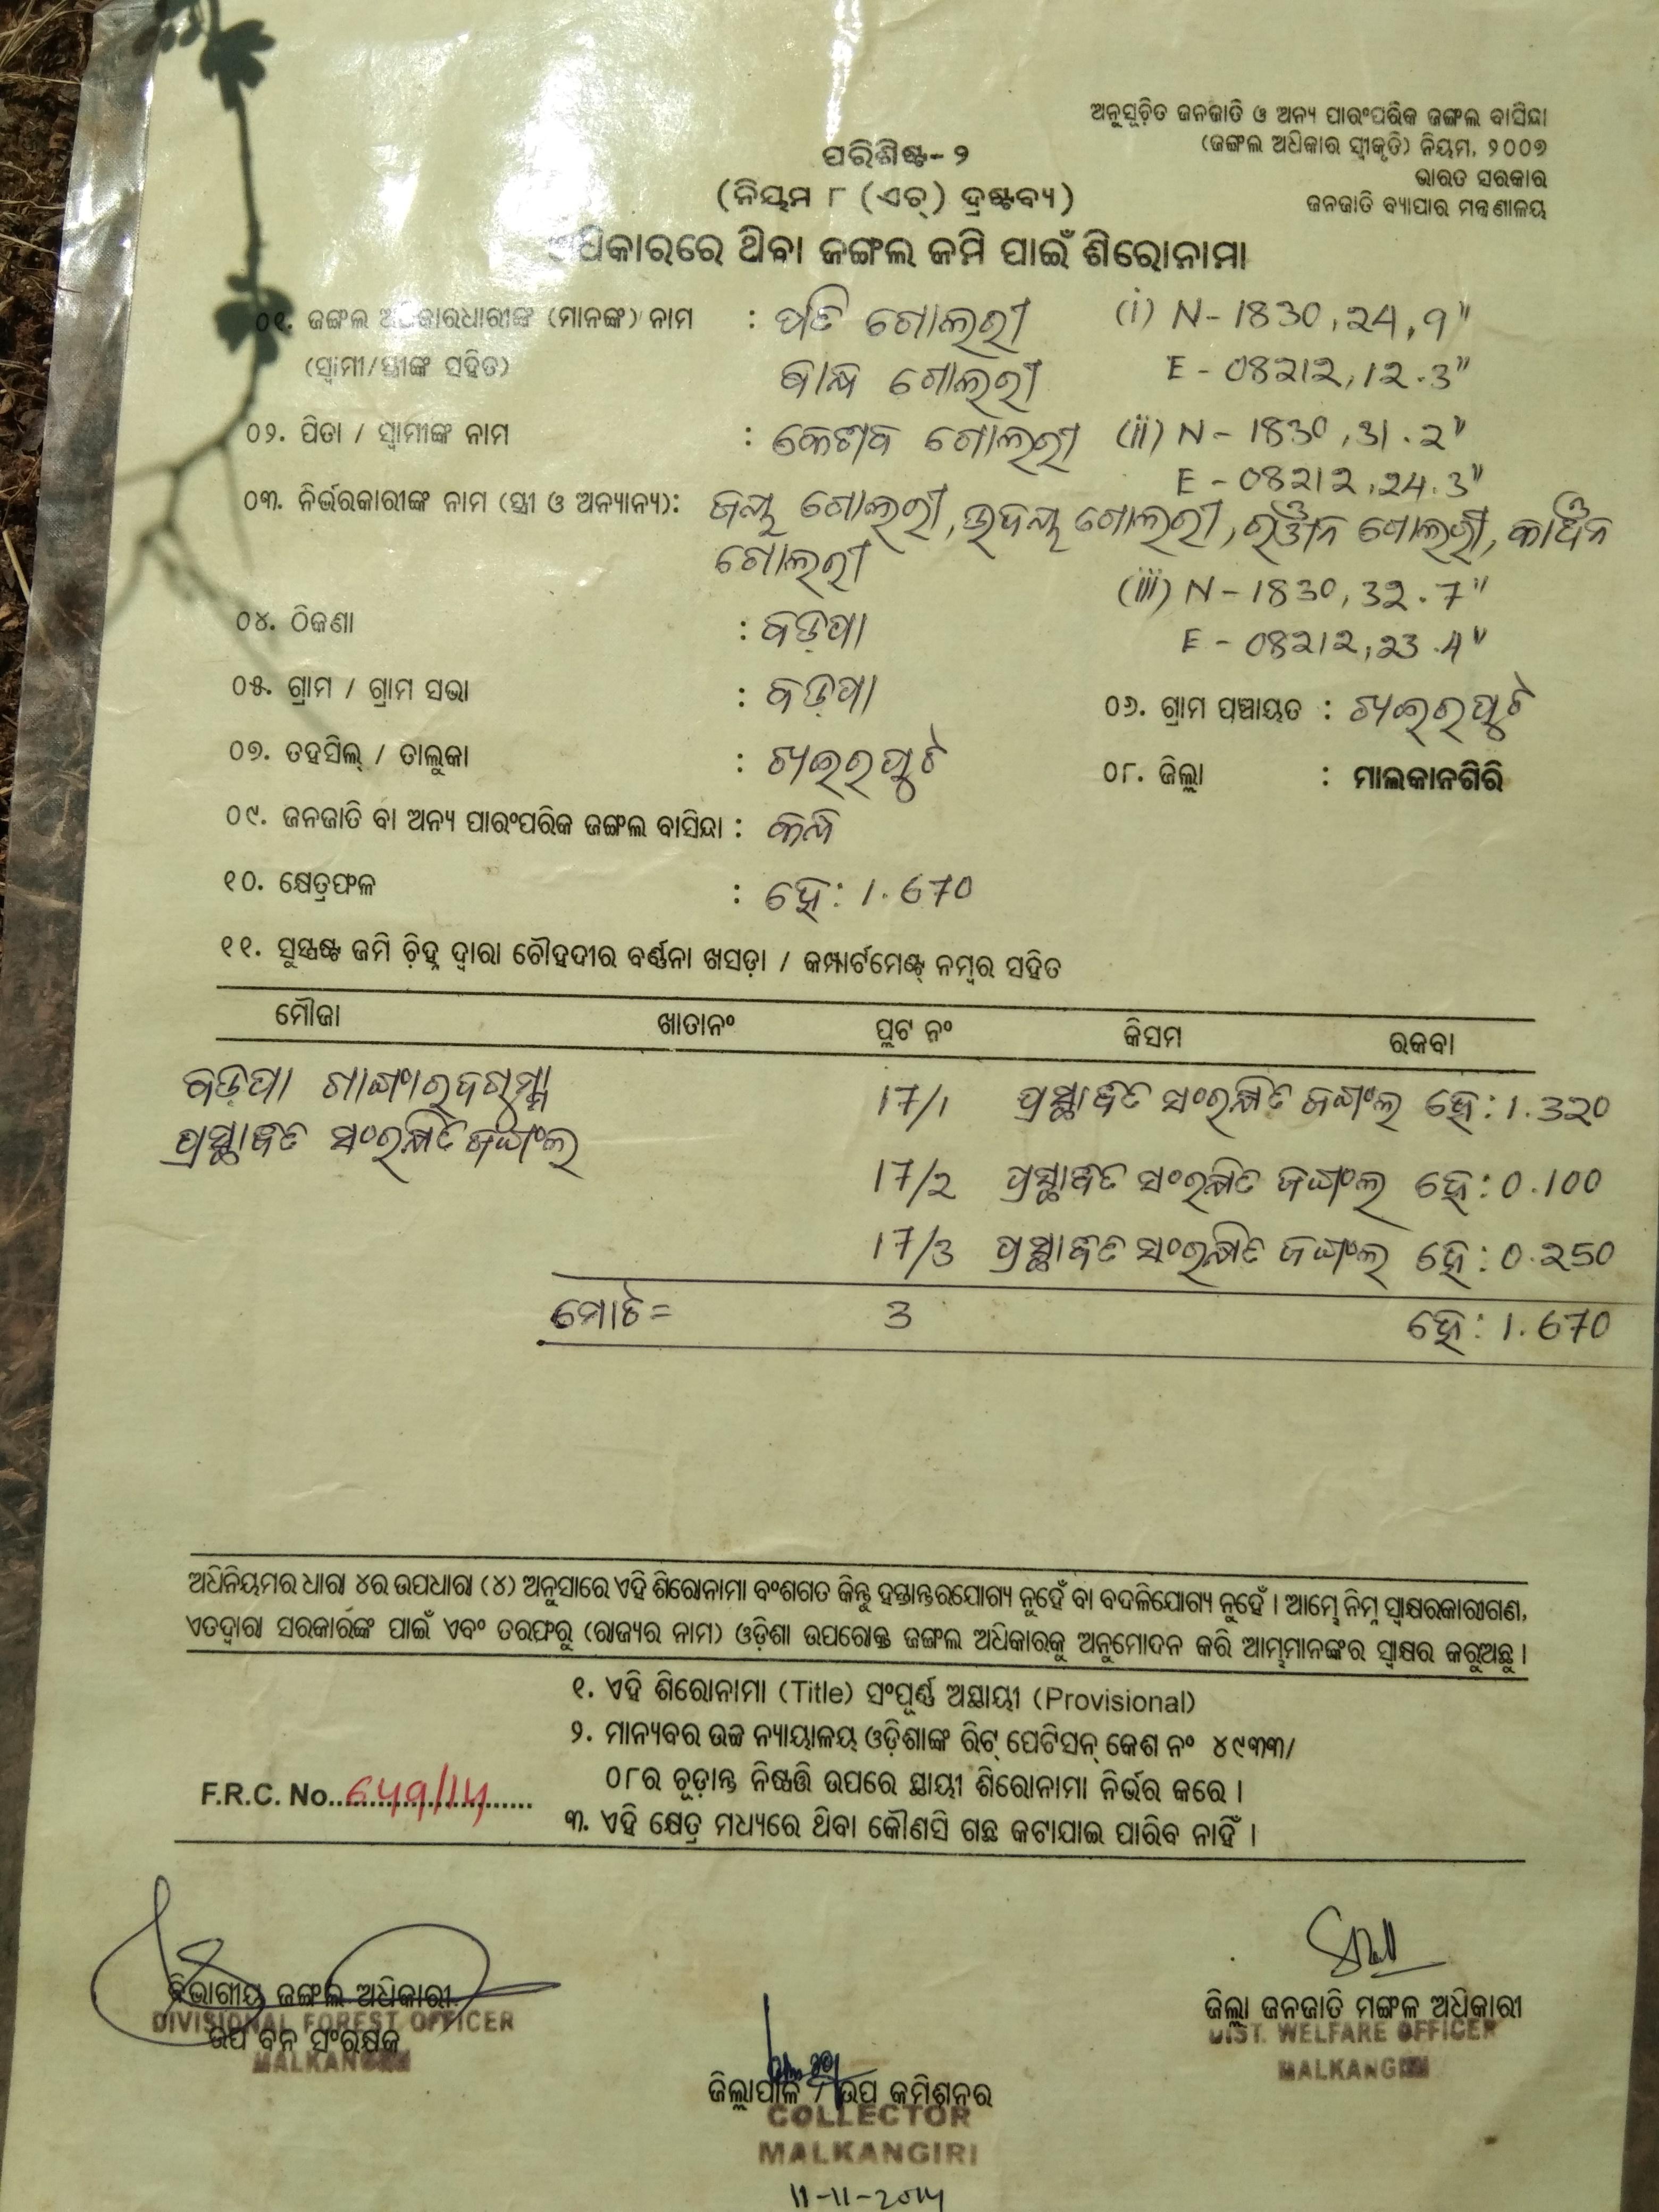 ଅନୁସୂଚିତ ଜନଜାତି ଓ ଅନ୍ୟ ପାରଂପରିକ ଜଙ୍ଗଲ ବାସିନ୍ଦା
(ଜଙ୍ଗଲ ଅଧିକାର ସ୍ୱୀକୃତି) ନିୟମ, ୨୦୦୭
ଭାରତ ସରକାର
ଜନଜାତି ବ୍ୟାପାର ମନ୍ତ୍ରଣାଳୟ
ପରିଶିଷ୍ଟ- ୨
(ନିୟମ ୮ (ଏଚ୍) ଦ୍ରଷ୍ଟବ୍ୟ)
ଅଧିକାରରେ ଥିବା ଜଙ୍ଗଲ ଜମି ପାଇଁ ଶିରୋନାମା
୦୧. ଜଙ୍ଗଲ ଅଧିକାରଧାରୀଙ୍କ (ମାନଙ୍କ) ନାମ : ପତି ଗୋଲରୀ (i) N-1830,24,9"
(ସ୍ୱାମୀ/ସ୍ତ୍ରୀଙ୍କ ସହିତ) ଗୋଲରୀ E-08212,12.3"
୦୨. ପିତା / ସ୍ୱାମୀଙ୍କ ନାମ : କେଶବ ଗୋଲରୀ (ii) N-1830,31.2"
E-08212,24.3"
୦୩. ନିର୍ଭରକାରୀଙ୍କ ନାମ (ସ୍ତ୍ରୀ ଓ ଅନ୍ୟାନ୍ୟ): ଗୋଲରୀ, ଗୋଲରୀ, ଗୋଲରୀ,
ଗୋଲରୀ
(iii) N-1830,32.7"
୦୪. ଠିକଣା : ବଡ଼ପା
E-08212,23.4"
୦୫. ଗ୍ରାମ / ଗ୍ରାମ ସଭା : ବଡ଼ପା ୦୬. ଗ୍ରାମ ପଞ୍ଚାୟତ : ଖଇରପୁଟ
୦୭. ତହସିଲ୍ / ତାଲୁକା : ଖଇରପୁଟ ୦୮. ଜିଲ୍ଲା : ମାଲକାନଗିରି
୦୯. ଜନଜାତି ବା ଅନ୍ୟ ପାରଂପରିକ ଜଙ୍ଗଲ ବାସିନ୍ଦା : କନ୍ଧ
୧୦. କ୍ଷେତ୍ରଫଳ : ହେ: 1.670
୧୧. ସୁସ୍ପଷ୍ଟ ଜମି ଚିହ୍ନ ଦ୍ୱାରା ଚୌହଦୀର ବର୍ଣ୍ଣନା ଖସଡ଼ା / କମ୍ପାର୍ଟମେଣ୍ଟ୍ ନମ୍ବର ସହିତ
ମୌଜା ଖାତାନଂ ପ୍ଲଟ ନଂ କିସମ ରକବା
ବଡ଼ପା 17/1 ପ୍ରସ୍ଥାବିତ ସଂରକ୍ଷିତ ଜଙ୍ଗଲ ହେ: 1.320
ପ୍ରସ୍ଥାବିତ ସଂରକ୍ଷିତ ଜଙ୍ଗଲ
17/2 ପ୍ରସ୍ଥାବିତ ସଂରକ୍ଷିତ ଜଙ୍ଗଲ ହେ: 0.100
17/3 ପ୍ରସ୍ଥାବିତ ସଂରକ୍ଷିତ ଜଙ୍ଗଲ ହେ: 0.250
ମୋଟ= 3 ହେ: 1.670
ଅଧିନିୟମର ଧାରା ୪ର ଉପଧାରା (୪) ଅନୁସାରେ ଏହି ଶିରୋନାମା ବଂଶଗତ କିନ୍ତୁ ହସ୍ତାନ୍ତରଯୋଗ୍ୟ ନୁହେଁ ବା ବଦଳିଯୋଗ୍ୟ ନୁହେଁ । ଆମ୍ଭେ ନିମ୍ନ ସ୍ୱାକ୍ଷରକାରୀଗଣ,
ଏତଦ୍ୱାରା ସରକାରଙ୍କ ପାଇଁ ଏବଂ ତରଫରୁ (ରାଜ୍ୟର ନାମ) ଓଡ଼ିଶା ଉପରୋକ୍ତ ଜଙ୍ଗଲ ଅଧିକାରକୁ ଅନୁମୋଦନ କରି ଆମ୍ଭମାନଙ୍କର ସ୍ୱାକ୍ଷର କରୁଅଛୁ ।
୧. ଏହି ଶିରୋନାମା (Title) ସଂପୂର୍ଣ୍ଣ ଅସ୍ଥାୟୀ (Provisional)
୨. ମାନ୍ୟବର ଉଚ୍ଚ ନ୍ୟାୟାଳୟ ଓଡ଼ିଶାଙ୍କ ରିଟ୍ ପେଟିସନ୍ କେଶ ନଂ ୪୯୩୩/
୦୮ର ଚୂଡ଼ାନ୍ତ ନିଷ୍ପତ୍ତି ଉପରେ ସ୍ଥାୟୀ ଶିରୋନାମା ନିର୍ଭର କରେ ।
F.R.C. No. 649/14
୩. ଏହି କ୍ଷେତ୍ର ମଧ୍ୟରେ ଥିବା କୌଣସି ଗଛ କଟାଯାଇ ପାରିବ ନାହିଁ ।
ବିଭାଗୀୟ ଜଙ୍ଗଲ ଅଧିକାରୀ
DIVISIONAL FOREST OFFICER
ଉପ ବନ ସଂରକ୍ଷକ
MALKANGIRI
ଜିଲ୍ଲା ଜନଜାତି ମଙ୍ଗଳ ଅଧିକାରୀ
DIST. WELFARE OFFICER
MALKANGIRI
ଜିଲ୍ଲାପାଳ / ଉପ କମିଶନର
COLLECTOR
MALKANGIRI
11-11-2014